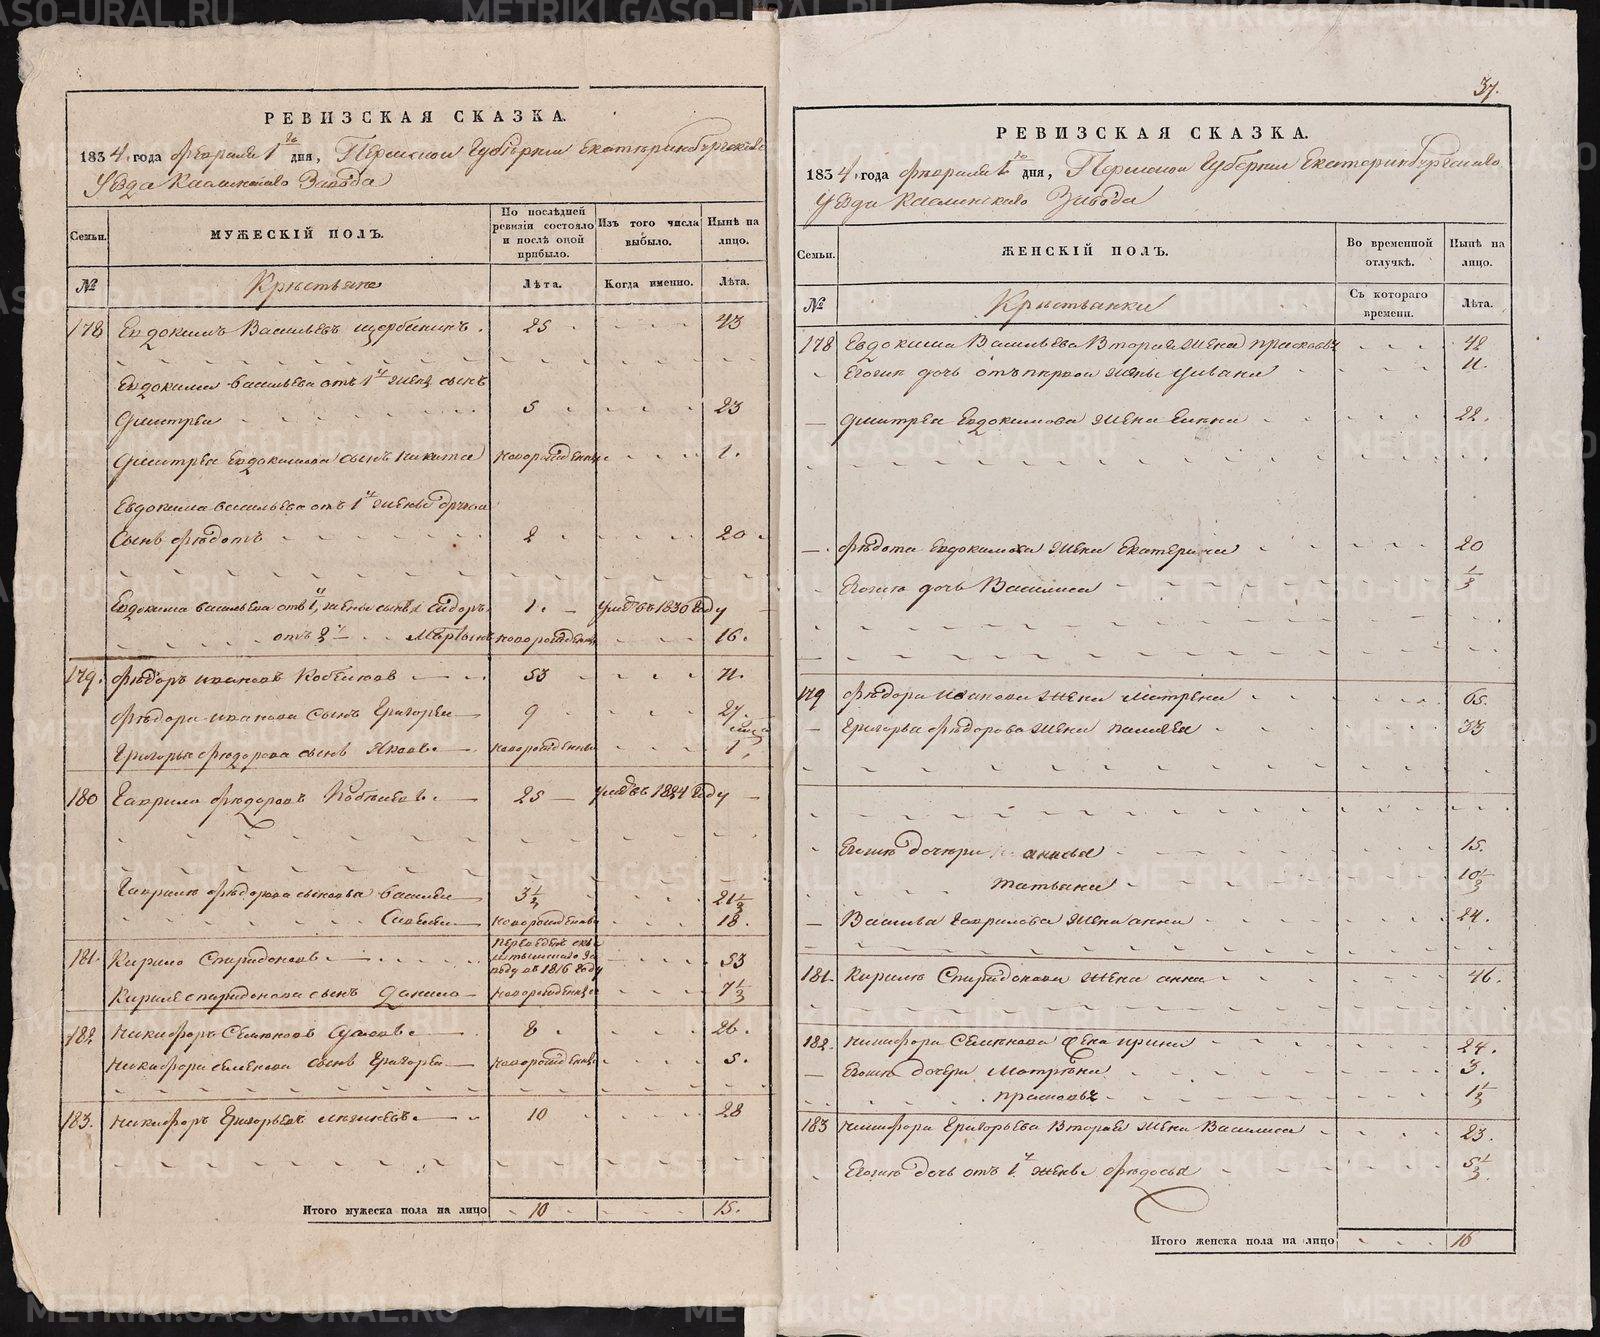 РЕВИЗСКАЯ СКАЗКА.
1834 года февраля 1го дня, Пермской Губернии Екатеринбургскаго
Уезда Каслинскаго Завода
Семьи.
МУЖЕСКІЙ ПОЛЪ.
По послѣдней ревизіи состояло и послѣ оной прибыло.
Изъ того числа выбыло.
Нынѣ на лицо.
№
Крестьяне
Лѣта.
Когда именно.
Лѣта.
178 Евдокимъ Васильевъ Щербининъ. 25 43
Евдокима Васильева отъ 1й жены сынъ
Дмитрей 5 23
Дмитрея Евдокимова сынъ Никита новорожденны 1.
Евдокима Васильева отъ 1й жены другой
Сынъ Федотъ 2 20
Евдокима Васильева отъ 1й жены сынъ Сидоръ 1. 1830 году
отъ 2й Мартынъ новорожденны 16.
179. Федоръ Ивановъ 53 71.
Федора Иванова Сынъ Григорей 9 27.
Григорья Федорова сынъ Яковъ новорожденны 1
180 Гаврило Федоровъ 25 1824 году
Гаврилы Федорова сыновья Василей 3½ 21½
Савелей новорожденны 18.
181. Кирило Спиридоновъ переведенъ въ 1816 году 53
Кирилы Спиридонова сынъ Данило новорожденны 7½
182 Никифоръ Семеновъ 8 26.
Никифора Семенова сынъ Григорей новорожденны 5.
183. Никифоръ Григорьевъ 10 28
Итого мужеска пола на лицо 10 15.
37.
РЕВИЗСКАЯ СКАЗКА.
1834 года февраля 1го дня, Пермской Губернии Екатеринбургскаго
Уезда Каслинскаго Завода
Семьи.
ЖЕНСКІЙ ПОЛЪ.
Во временной отлучкѣ.
Нынѣ на лицо.
№
Крестьянки
Съ котораго времени.
Лѣта.
178 Евдокима Васильева Вторая жена Прасковья 42
Егожъ дочь отъ первой жены Ульяна 11.
Дмитрея Евдокимова жена Елена 22.
Федота Евдокимова жена Екатерина 20
Егожъ дочь Василиса
179 Федора Иванова жена Матрена 65.
Григорья Федорова жена Пелагея 33
Егожъ дочери 15.
Татьяна 10½
Василья Гаврилова жена Анна 24.
181. Кирилы Спиридонова жена Анна 46.
182. Никифора Семенова жена Ирина 24.
Егожъ дочери Матрена 3.
Прасковья 1½
183 Никифора Григорьева Вторая жена Василиса 23.
Егожъ дочь отъ 1й жены Федосья 5½
Итого женска пола на лицо 16
METRIKI.GASO-URAL.RU